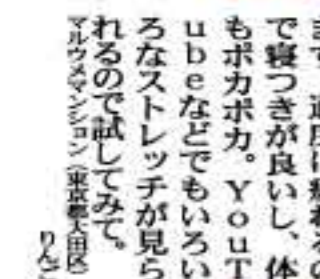 ます。適度に疲れるの
で寝つきが良いし、体
もポカポカ。YouT
ubeなどでもいろい
ろなストレッチが見ら
れるので試してみて。
マルウメマンション（東京都大田区）
りんご